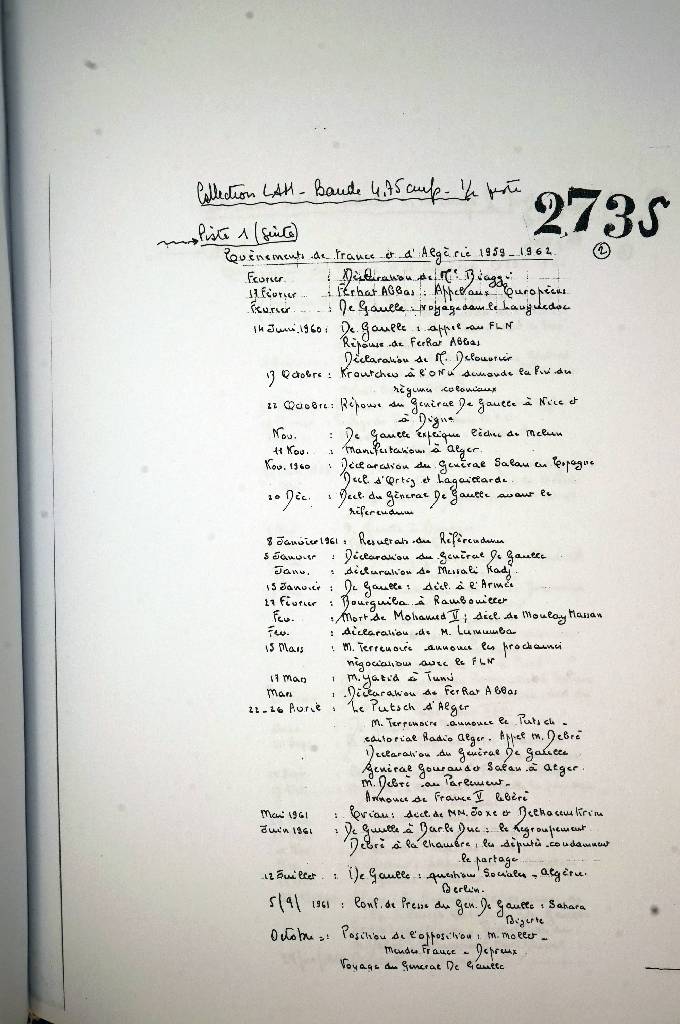 Collection LAH - Bande 4,75 cm/s - 1/2 piste
2735
Piste 1 (Suite)
2
Evènements de France et d'Algérie 1959-1962
Février : Déclaration de Me Biaggi
17 Février : Ferhat Abbas : Appel aux Européens
Février : De Gaulle : voyage dans le Languedoc
14 Juin 1960 : De Gaulle : appel au FLN
Réponse de Ferhat Abbas
Déclaration de M. Delouvrier
13 Octobre : Kroutchev à l'ONU demande la fin du
régime coloniaux
22 Octobre : Réponse du Général De Gaulle à Nice et
à Digne
Nov. : De Gaulle explique l'échec de Melun
11 Nov. : Manifestations à Alger.
Nov. 1960 : Déclaration du Général Salan en Espagne
Decl. d'Ortiz et Lagaillarde.
20 Déc. : Decl. du Général De Gaulle avant le
référendum
8 Janvier 1961 : Resultats du Référendum
5 Janvier : Déclaration du Général De Gaulle
Janv. : déclaration de Messali Hadj
15 Janvier : De Gaulle : décl. à l'Armée
27 Février : Bourguiba à Rambouillet
Fev. : Mort de Mohamed V ; décl. de Moulay Hassan
Fev. : déclaration de M. Lumumba
15 Mars : M. Terrenoire annonce les prochaines
négociations avec le FLN
17 Mars : M. Yazid à Tunis
Mars : Déclaration de Ferhat Abbas
22-26 Avril : Le Putsch d'Alger
M. Terrenoire annonce le Putsch -
editorial Radio Alger. Appel M. Debré
Declaration du Général De Gaulle
Général Gouraud et Salan à Alger.
M. Debré au Parlement -
Annonce de France V libéré
Mai 1961 : Evian : décl de MM. Joxe et Belkacem Krim
Juin 1961 : De Gaulle à Bar le Duc : le regroupement
Debré à la Chambre ; les députés condamnent
le partage
12 Juillet : De Gaulle : questions Sociales - Algérie.
Berlin.
5/9/1961 : Conf. de Presse du Gen. De Gaulle : Sahara
Bizerte
Octobre : Position de l'opposition : M. Mollet -
Mendes France - Depreux
Voyage du Général De Gaulle